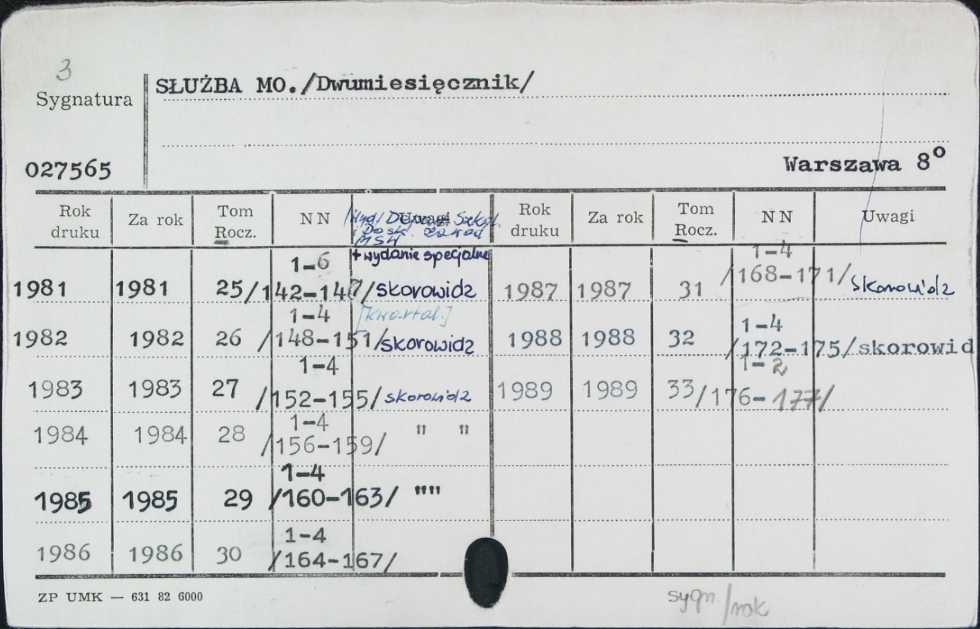 3
Sygnatura
SŁUŻBA MO./Dwumiesięcznik/
027565
Warszawa 8º
Rok druku Za rok Tom Rocz. NN Uwagi Rok druku Za rok Tom Rocz. NN Uwagi
Dosk. Zawod
MSW
+ wydanie specjalne
1981 1981 25 1-6 /142-147/ skorowidz
[kwartal.]
1982 1982 26 1-4 /148-151/ skorowidz
1983 1983 27 1-4 /152-155/ skorowidz
1984 1984 28 1-4 /156-159/ " "
1985 1985 29 1-4 /160-163/ ""
1986 1986 30 1-4 /164-167/
1987 1987 31 1-4 /168-171/ skorowidz
1988 1988 32 1-4 /172-175/ skorowid
1989 1989 33 1-2 /176-177/
ZP UMK — 631 82 6000
sygn/rok